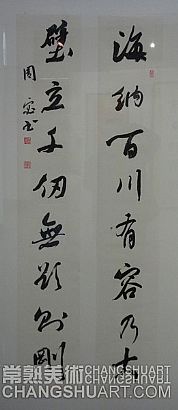 海納百川有容乃大
壁立千仞無欲則剛
周
书
常熟美術
CHANGSHUART.COM